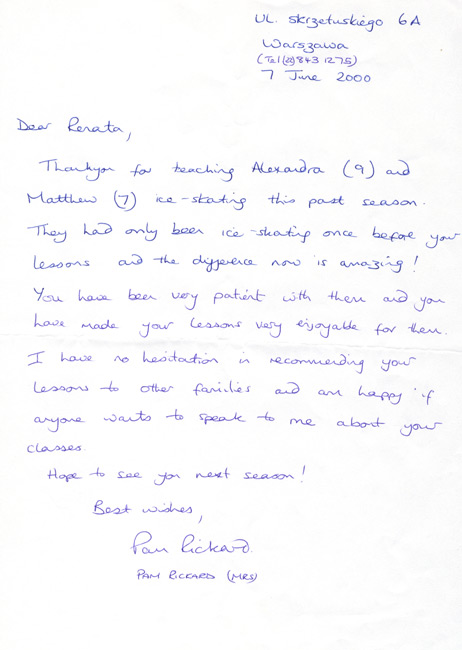 UL. Skrzetuskiego 6A
Warszawa
(Tel (22) 843 1275)
7 June 2000
Dear Renata,
Thankyou for teaching Alexandra (9) and
Matthew (7) ice-skating this past season.
They had only been ice-skating once before your
lessons and the difference now is amazing!
You have been very patient with them and you
have made your lessons very enjoyable for them.
I have no hesitation in recommending your
lessons to other families and am happy if
anyone wants to speak to me about your
classes.
Hope to see you next season!
Best wishes,
Pam Rickard.
PAM RICKARD (MRS)